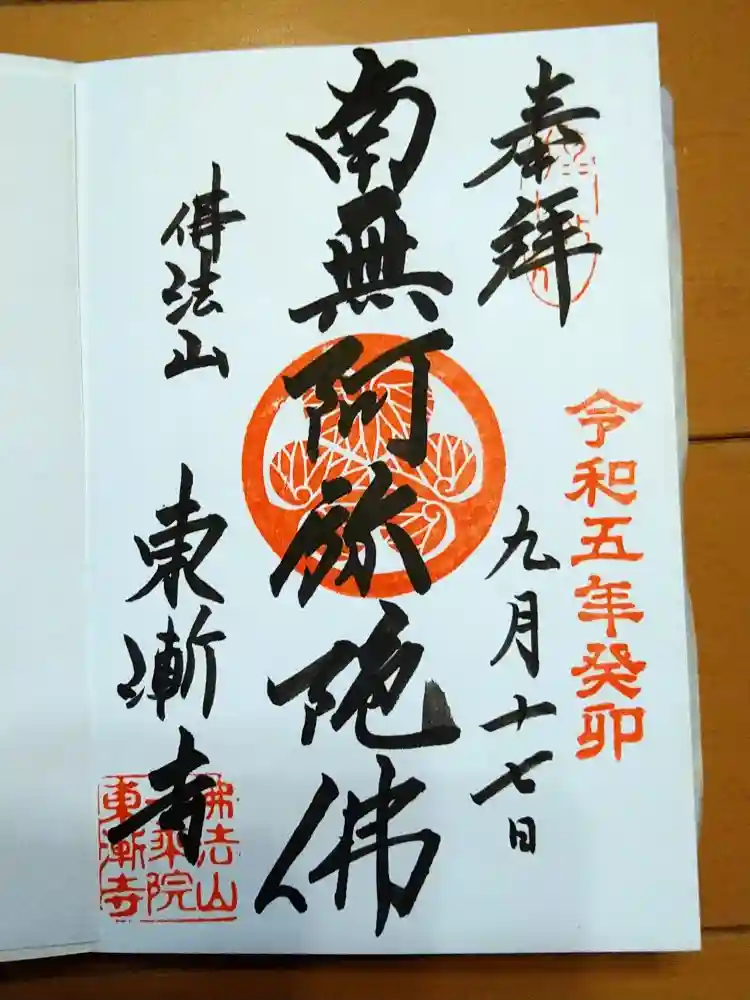 奉拝
令和五年癸卯
九月十七日
南無阿弥陀佛
佛法山
東漸寺
佛法山
一乗院
東漸寺